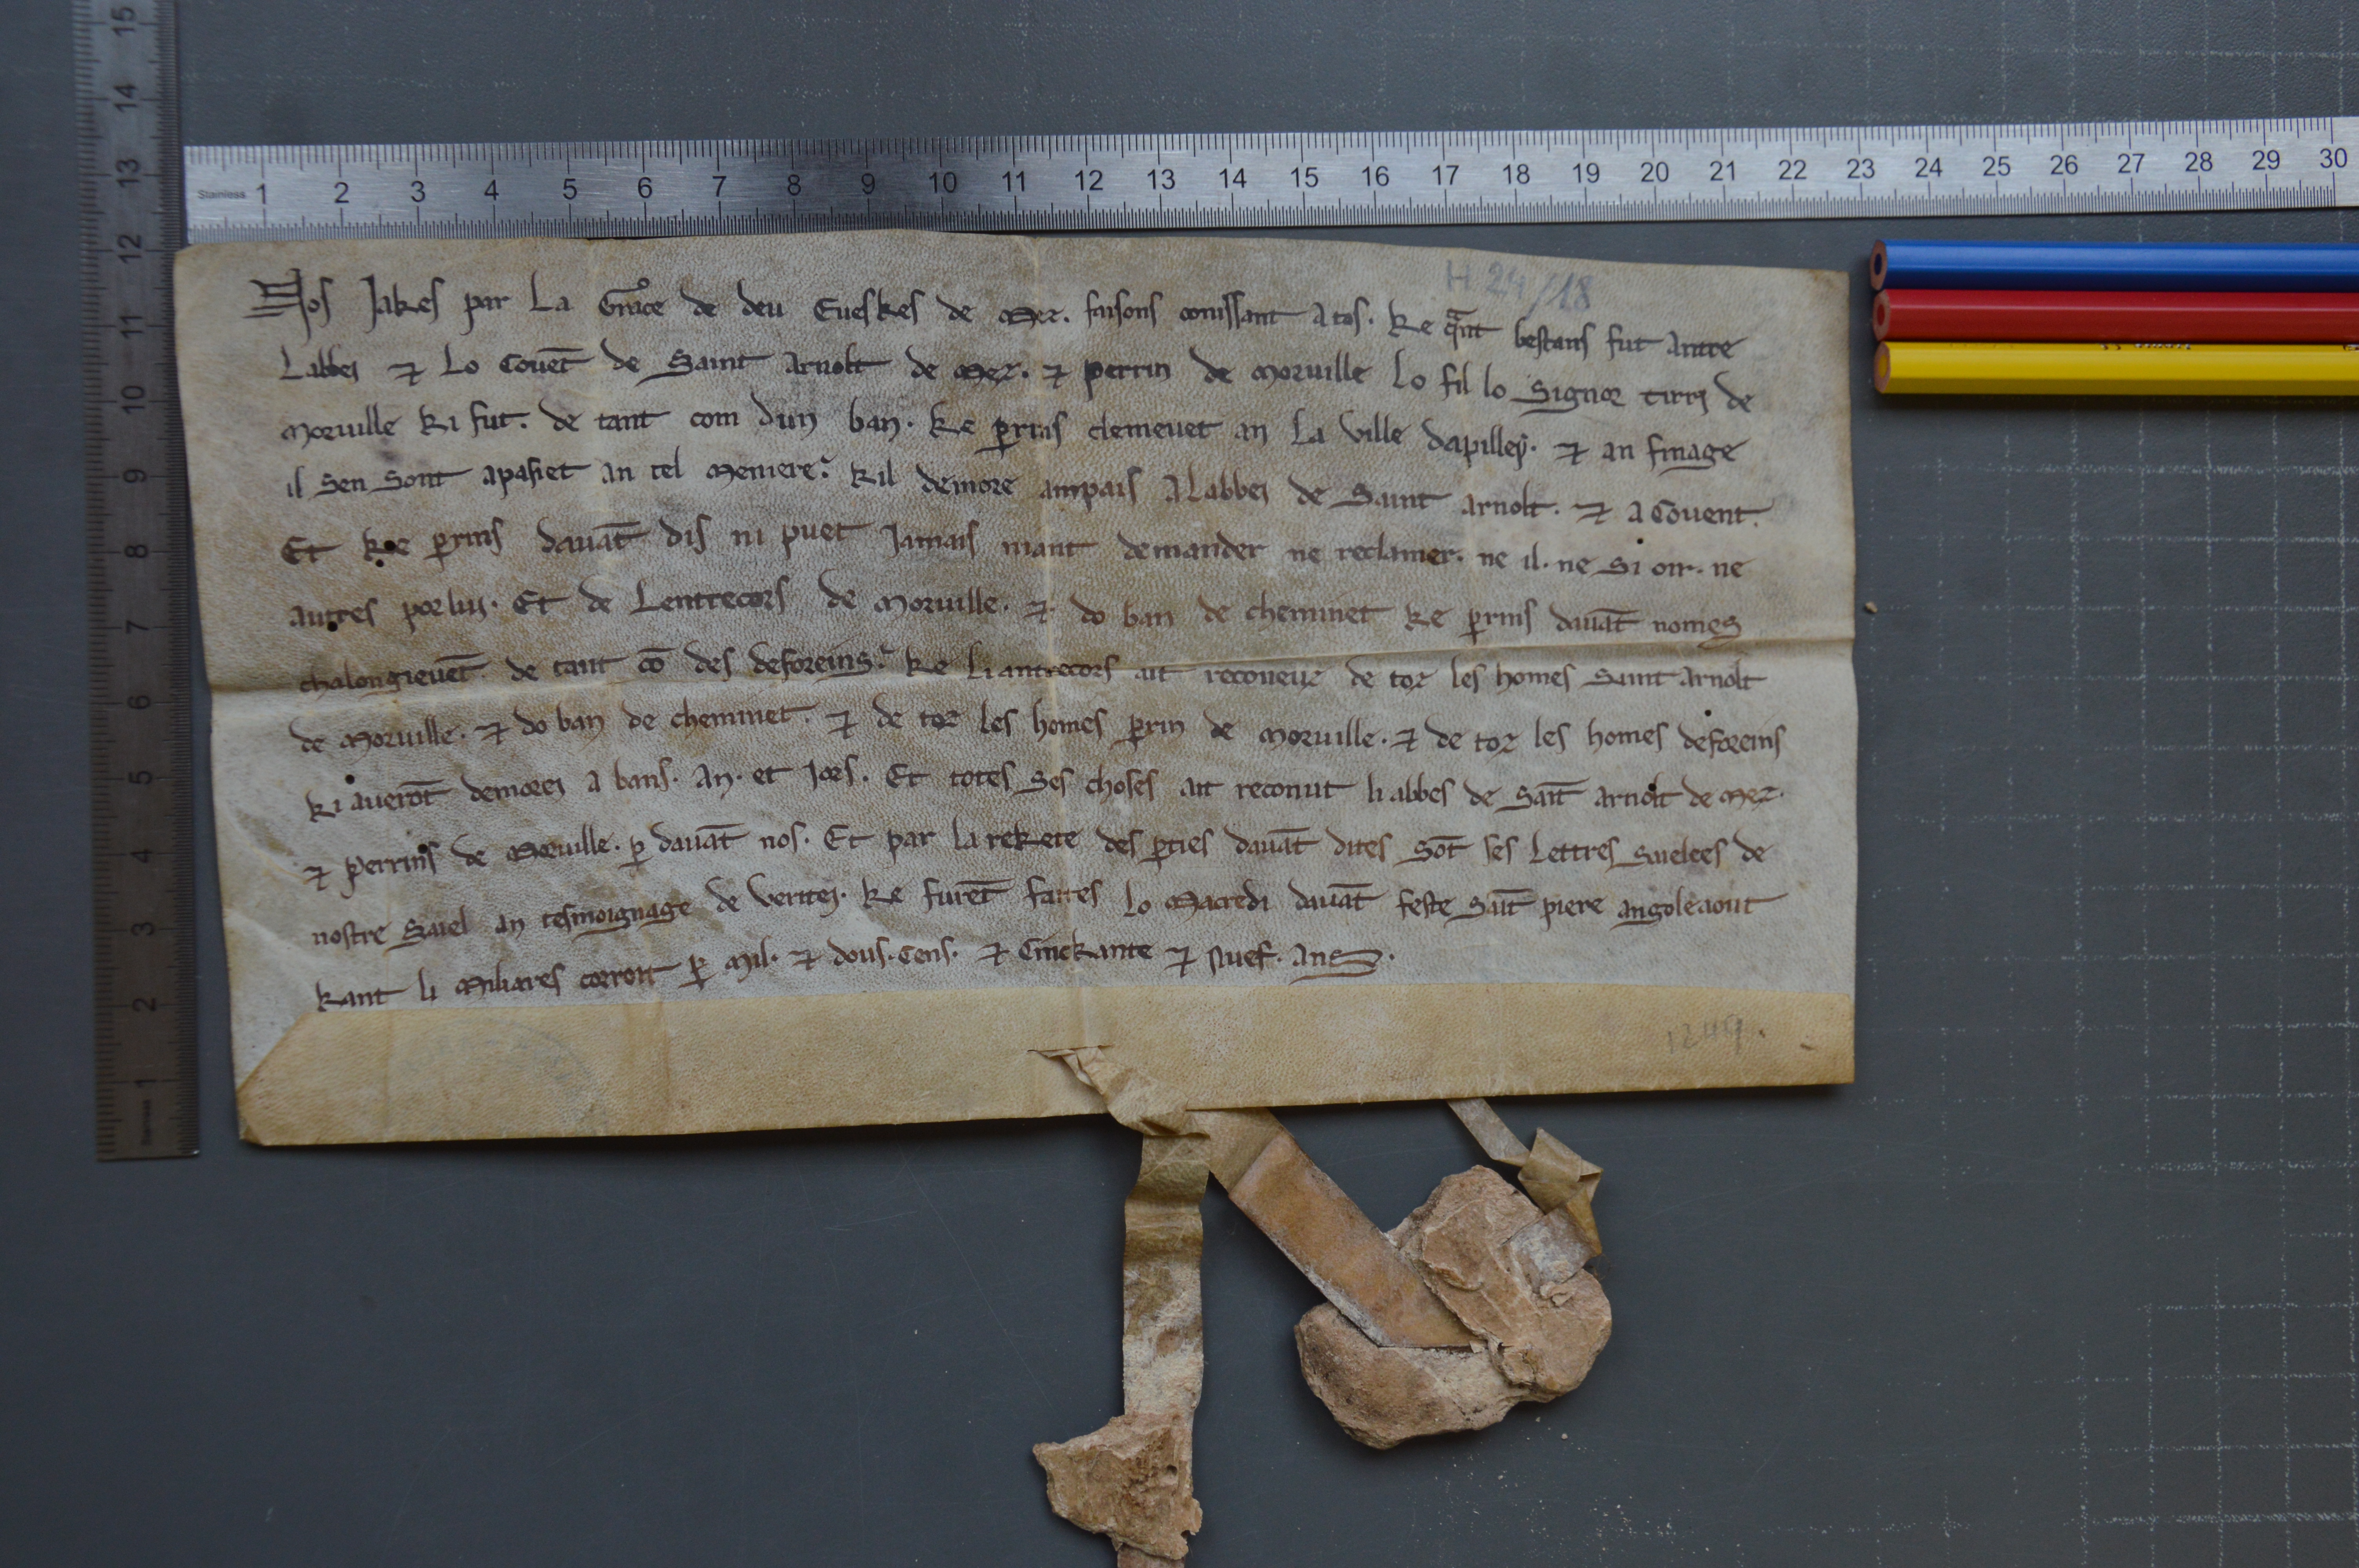 H 24/18
Nos Jakes par La Grace de deu Eueskes de Mez. faisons conissant a tos. Ke qant bestans fut antre
Labbei ⁊ Lo Couēt de Saint Arnolt de Mez. ⁊ perrin de Moruille Lo fil lo Signor tirri de
Moruille Ki fut. de tant com dun ban. Ke ꝑrins clemeuet an La ville dapilley. ⁊ an finage
il Sen Sont apasiet an tel Meniere. Kil demore anpais A Labbei de Saint Arnolt. ⁊ a Couent.
Et Ke ꝑrins dauāt dis ni puet Jamais niant demander ne reclamer. ne il. ne Si oir. ne
autres por lui. Et de Lentrecors de Moruille. ⁊ do ban de cheminet Ke ꝑrins dauāt nomes
chalongieuēt de tant cō des deforeins. Ke Li antrecors ait receueur de toz les homes Saint Arnolt
de Moruille. ⁊ do ban de cheminet. ⁊ de toz les homes ꝑrin de Moruille. ⁊ de toz les homes deforeins
Ki auerōt demorei a bans. An. et Jors. Et totes Ses choses ait reconut li abbes de Saīt Arnolt de Mez.
⁊ Perrins de Moruille. ꝑ dauāt nos. Et par la rekete des ꝑties dauāt dites Sōt ses Lettres Saielees de
nostre Saiel an tesmoignage de veritei. Ke furēt faites Lo Macredi dauāt feste Saīt piere angoleaout
Kant li Miliares corroit ꝑ Mil. ⁊ dous. Cens. ⁊ Cinckante ⁊ Nuef. Ans.
1249.
Stainless 1 2 3 4 5 6 7 8 9 10 11 12 13 14 15 16 17 18 19 20 21 22 23 24 25 26 27 28 29 30
1 2 3 4 5 6 7 8 9 10 11 12 13 14 15